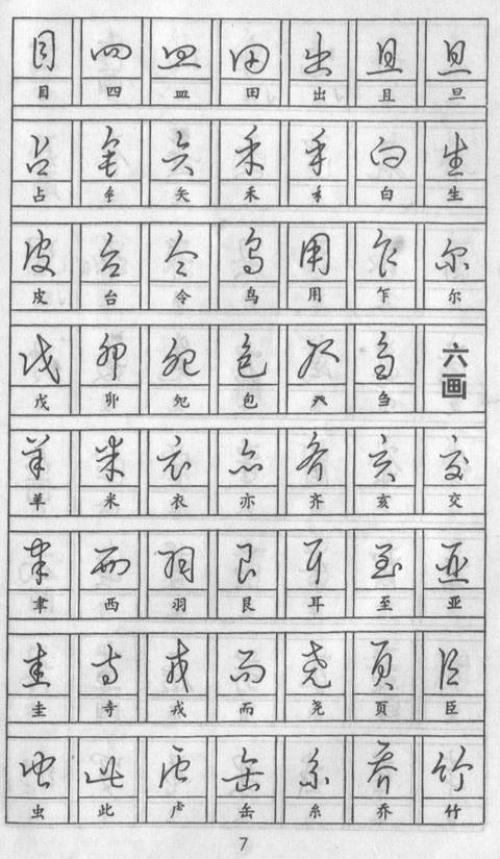 目 四 皿 田 出 且 旦
目 四 皿 田 出 且 旦
占 矢 禾 白 生
占 矢 禾 白 生
皮 台 令 鸟 用 乍 尔
皮 台 令 鸟 用 乍 尔
戊 卯 包 刍 六画
戊 卯 包 刍
羊 米 衣 亦 齐 亥 交
羊 米 衣 亦 齐 亥 交
聿 西 羽 艮 耳 至 亚
聿 西 羽 艮 耳 至 亚
圭 寺 戎 而 尧 页 臣
圭 寺 戎 而 尧 页 臣
虫 此 虍 缶 糸 乔 竹
虫 此 虍 缶 糸 乔 竹
7